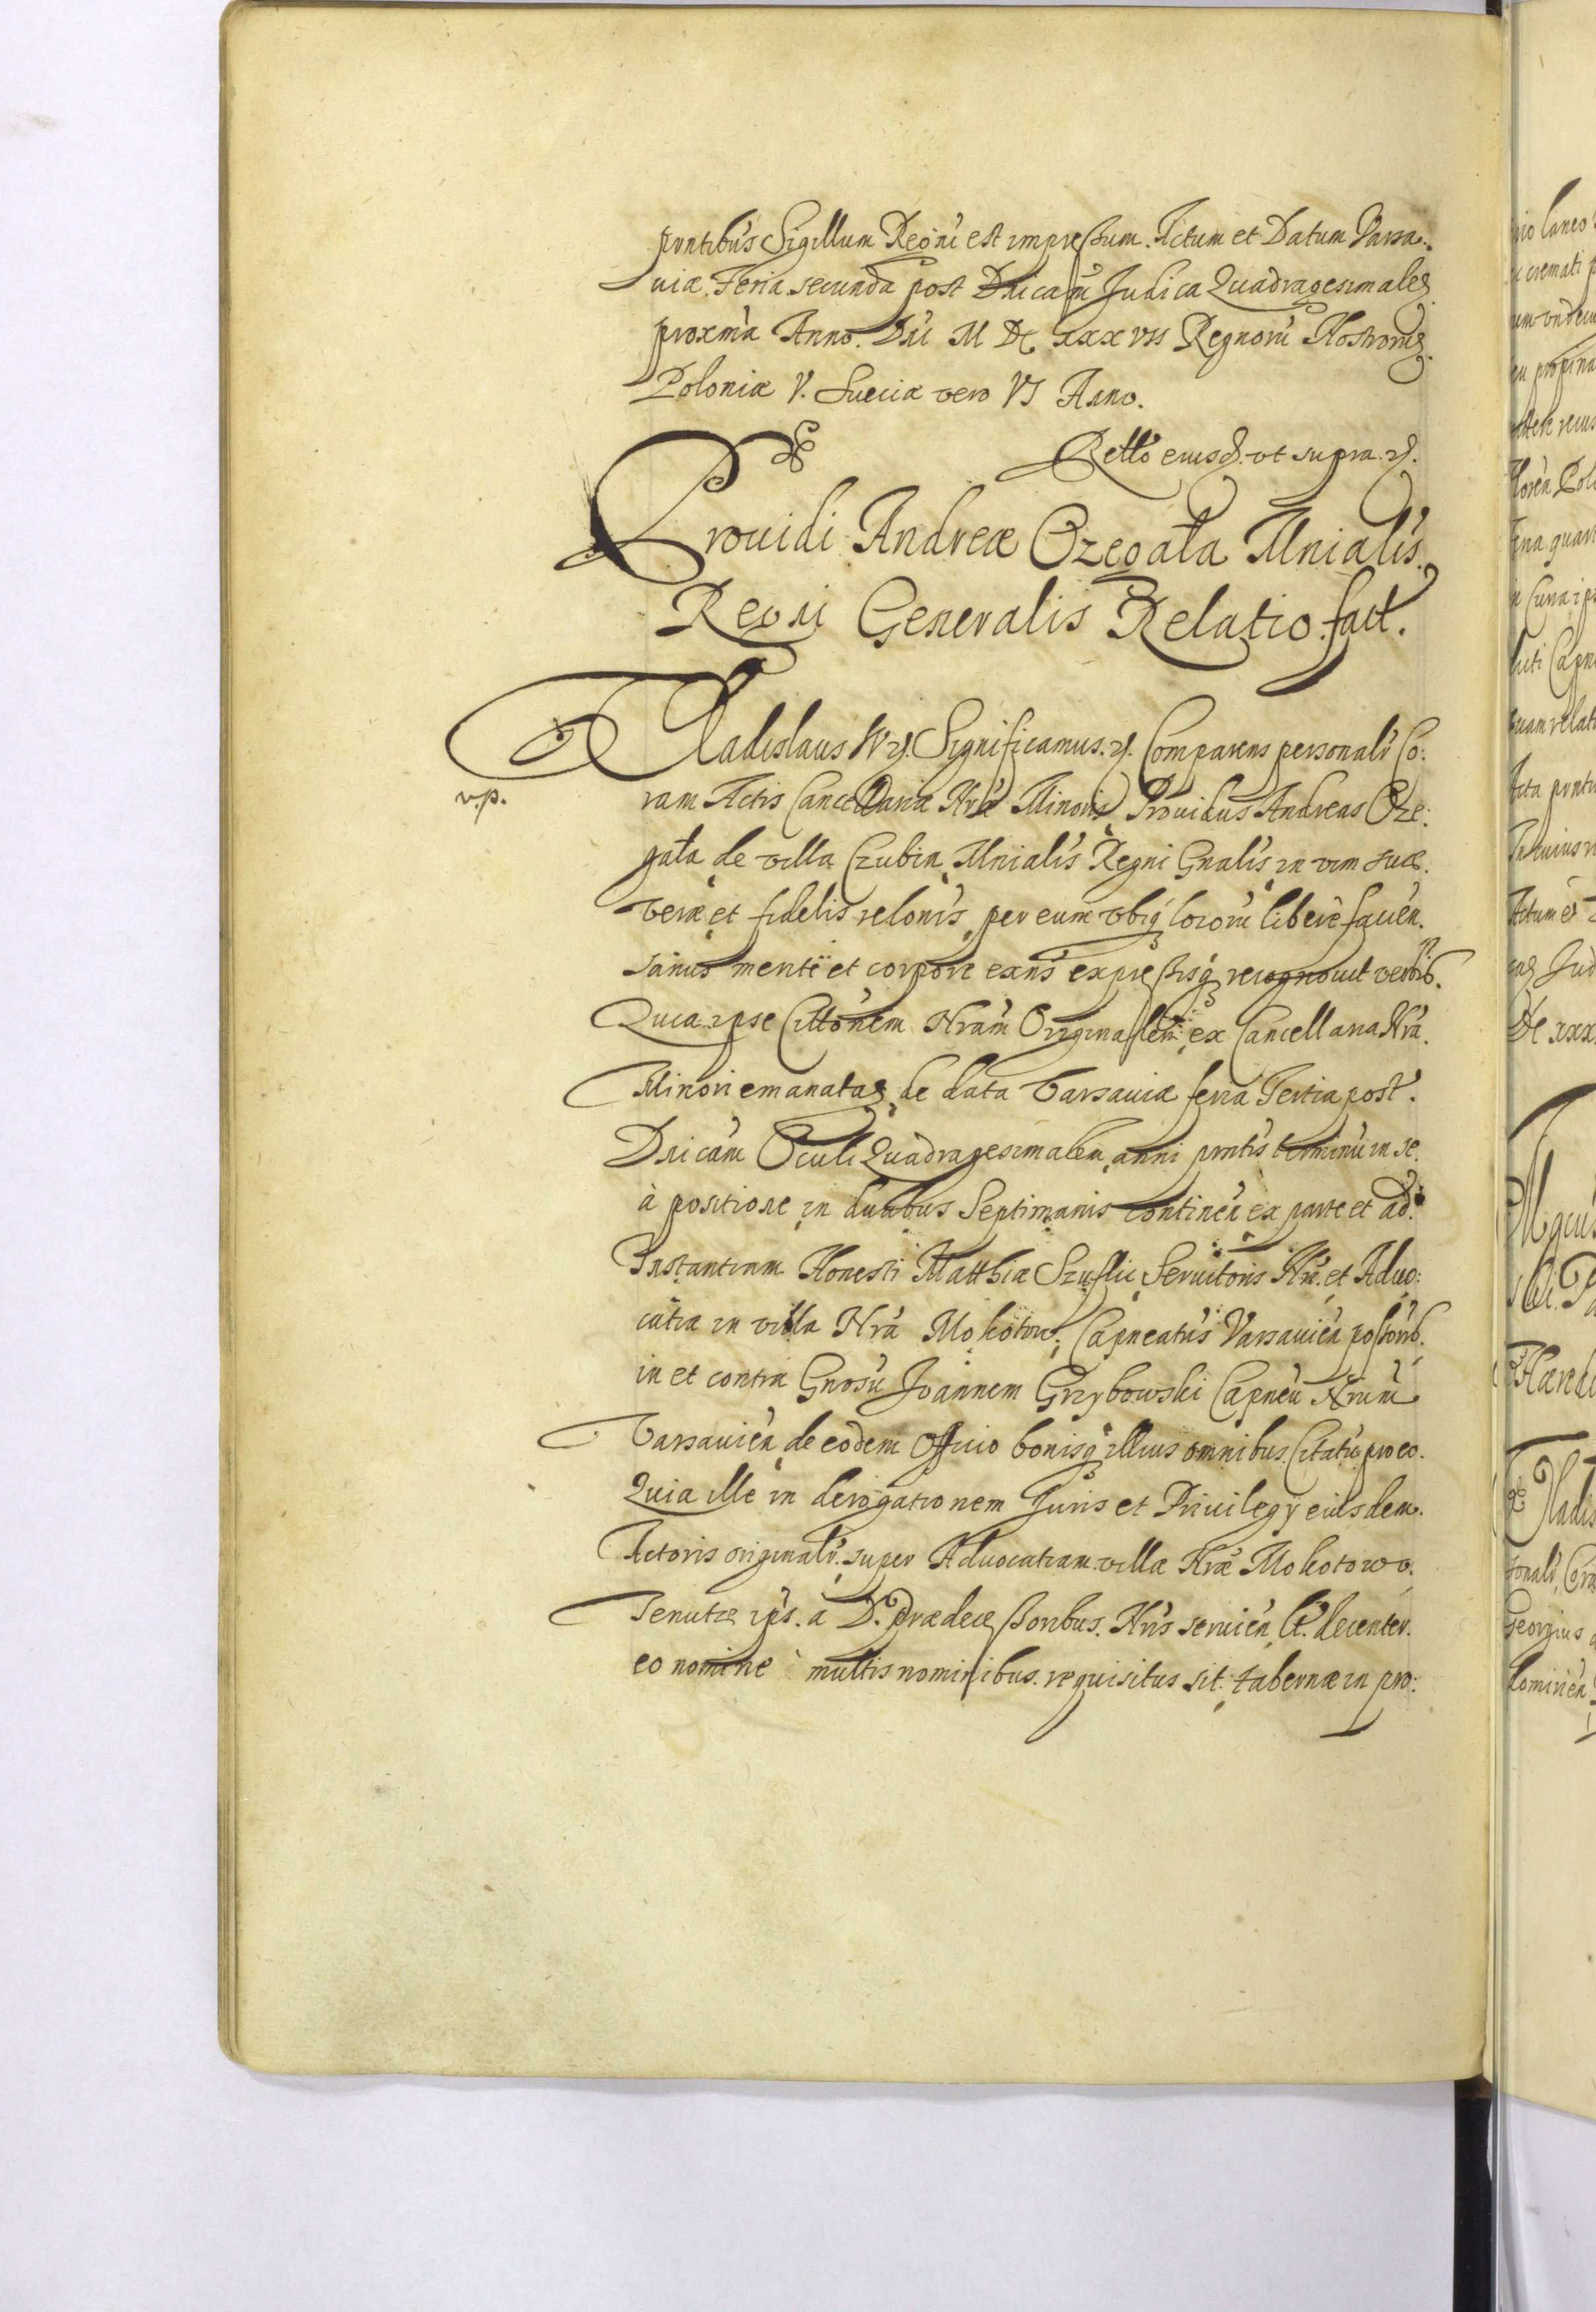 pṛntibus Sigillum Regni est impressum. Actum et Datum Varsa:
uiæ. Feria secunda post Dnicam Judica Quadragesimalem
proxima Anno. Dni M DC xxx vii Regnorũ Nostrorũ
Poloniæ V. Sueciæ vero VI Anno.
Relto eiusd. vt supra. &.
Prouidi Andreæ Ozegała Mnialis.
Regni Generalis Relatio fact.
Vladislaus IV &. Significamus. &. Comparens personalr Co:
v.p.
ram Actis Cancellariæ Nræ Minoris Prouidus Andreas Oze:
gała de villa Czubin Mnialis Regni Gnalis in vim suæ.
veræ et fidelis relonis, per eum vbiq locorũ liberè facien.
sanus mente et corpore exns expressisq recognouit verbis.
Quia ipse Cittonem Nram Originalem ex Cancellaria Nra.
Minori emanatam de data Varsauiæ feria Tertia post.
Dnicam Oculi Quadragesimalem, anni pntis terminũ in se.
à positione in duabus Septimanis continen ex parte et ad.
Instantiam Honesti Matthiæ Szuflic Seruitoris Nri et Aduo:
catiæ in villa Nra Mokotow, Capneatus Varsauien possoris.
in et contra Gnosũ Joannem Grzybowski Capneũ Nrum
Varsauien de eodem Officio bonisq illius omnibus. Citatũ pro eo.
Quia ille in derogationem Juris et Priuilegy eiusdem.
Actoris originalr. super Aduocatiam villæ Nræ Mokotowo.
Tenutæ ips. a D. Prædecessoribus. Nris seruien lt. decenter.
eo nomine multis nominibus. requisitus sit. tabernæ in pro: